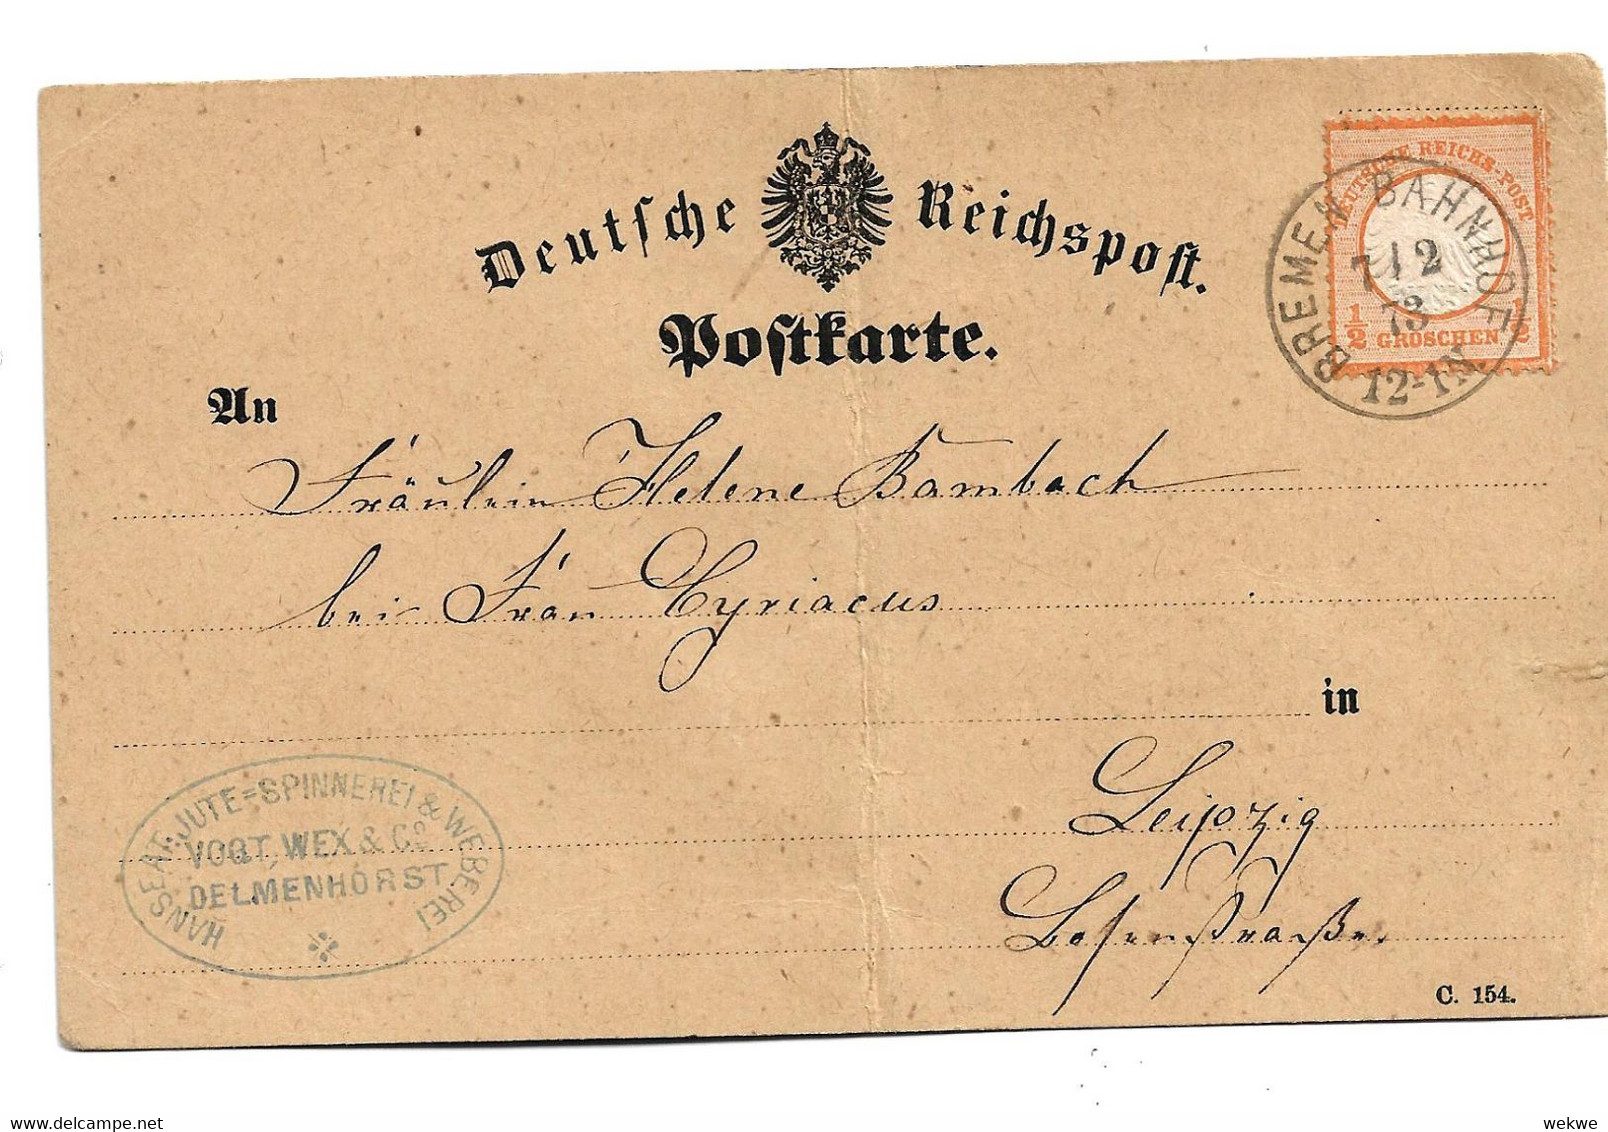 Deutsche Reichspost.
Postkarte.
DEUTSCHE REICHS-POST
½ GROSCHEN ½
BREMEN BAHNHOF
7 12
73
12-1N
An
Fräulein Helene Bambach
bei Frau Cyriacus
in
Leipzig
HANSEAT. JUTE=SPINNEREI & WEBEREI
VOGT, WEX & Co
DELMENHORST
C. 154.
wekwe